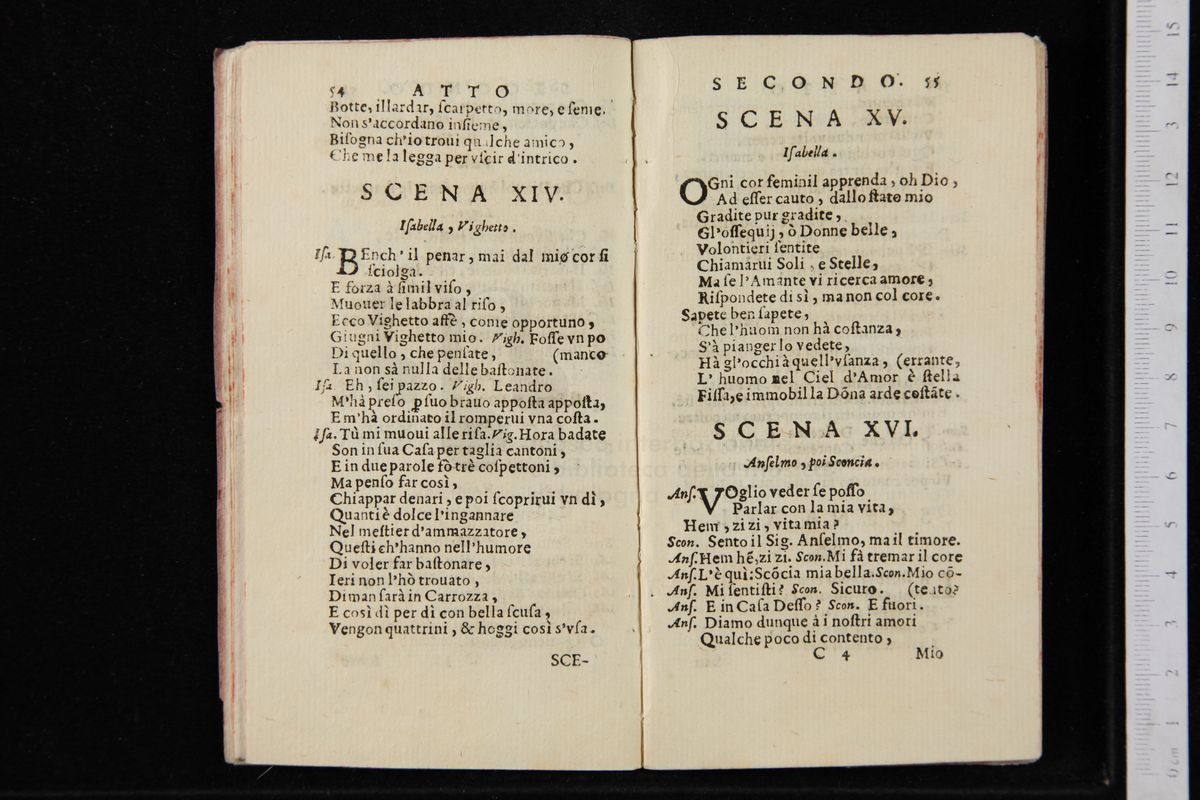 54 ATTO
Botte, illardar, ſcarpetto, more, e ſeme.
Non s'accordano inſieme,
Biſogna ch'io troui qualche amico,
Che me la legga per vſcir d'intrico.
SCENA XIV.
Iſabella, Vighetto.
Iſa. BEnch' il penar, mai dal mio cor ſi
ſciolga.
E forza à ſimil viſo,
Muouer le labbra al riſo,
Ecco Vighetto affè, come opportuno,
Giugni Vighetto mio. Vigh. Foſſe vn po
Di quello, che penſate, (manco
La non sà nulla delle baſtonate.
Iſa. Eh, ſei pazzo. Vigh. Leandro
M'hà preſo ꝑ ſuo brauo appoſta appoſta,
E m'hà ordinato il romperui vna coſta.
Iſa. Tù mi muoui alle riſa. Vig. Hora badate
Son in ſua Caſa per taglia cantoni,
E in due parole fò trè coſpettoni,
Ma penſo far così,
Chiappar denari, e poi ſcoprirui vn dì,
Quanti è dolce l'ingannare
Nel meſtier d'ammazzatore,
Queſti ch'hanno nell'humore
Di voler far baſtonare,
Ieri non l'hò trouato,
Diman ſarà in Carrozza,
E così dì per dì con bella ſcuſa,
Vengon quattrini, & hoggi così s'vſa.
SCE-
SECONDO. 55
SCENA XV.
Iſabella.
OGni cor feminil apprenda, oh Dio,
Ad eſſer cauto, dallo ſtato mio
Gradite pur gradite,
Gl'oſſequij, ò Donne belle,
Volontieri ſentite
Chiamarui Soli, e Stelle,
Ma ſe l'Amante vi ricerca amore,
Riſpondete di sì, ma non col core.
Sapete ben ſapete,
Che l'huom non hà coſtanza,
S'à pianger lo vedete,
Hà gl'occhi à quell'vſanza, (errante,
L' huomo nel Ciel d'Amor è ſtella
Fiſſa, e immobil la Dōna arde coſtāte.
SCENA XVI.
Anſelmo, poi Sconcia.
Anſ. VOglio veder ſe poſſo
Parlar con la mia vita,
Hem, zi zi, vita mia?
Scon. Sento il Sig. Anſelmo, ma il timore.
Anſ. Hem hé, zi zi. Scon. Mi fà tremar il core
Anſ. L'è quì: Scōcia mia bella. Scon. Mio cō-
Anſ. Mi ſentiſti? Scon. Sicuro. (tento?
Anſ. E in Caſa Deſſo? Scon. E fuori.
Anſ. Diamo dunque à i noſtri amori
Qualche poco di contento,
C 4 Mio